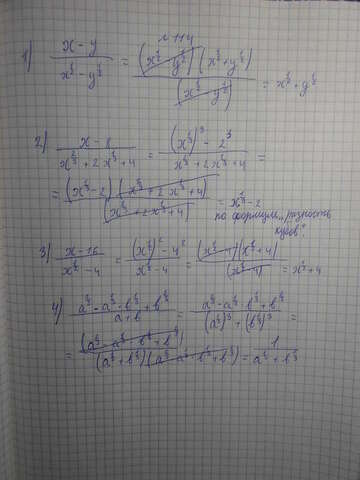 № 114
1) x - y / x^½ - y^½ = (x^½ - y^½)(x^½ + y^½) / (x^½ - y^½) = x^½ + y^½
2) x - 8 / x^⅔ + 2x^⅓ + 4 = (x^⅓)^3 - 2^3 / x^⅔ + 2x^⅓ + 4 =
= (x^⅓ - 2)(x^⅔ + 2x^⅓ + 4) / (x^⅔ + 2x^⅓ + 4) = x^⅓ - 2
по формуле „разность
кубов"
3) x - 16 / x^½ - 4 = (x^½)^2 - 4^2 / x^½ - 4 = (x^½ - 4)(x^½ + 4) / (x^½ - 4) = x^½ + 4
4) a^⅔ - a^⅓ · b^⅓ + b^⅔ / a + b = a^⅔ - a^⅓ · b^⅓ + b^⅔ / (a^⅓)^3 + (b^⅓)^3 =
= (a^⅔ - a^⅓ · b^⅓ + b^⅔) / (a^⅓ + b^⅓)(a^⅔ - a^⅓ · b^⅓ + b^⅔) = 1 / a^⅓ + b^⅓